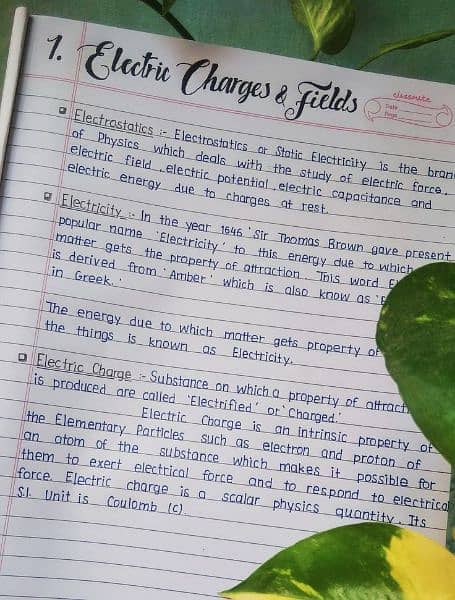 1. Electric Charges & Fields
classmate
Date
Page
Electrostatics :- Electrostatics or Static Electricity is the bran
of Physics which deals with the study of electric force,
electric field, electric potential, electric capacitance and
electric energy due to charges at rest.
Electricity :- In the year 1646 'Sir Thomas Brown gave present
popular name 'Electricity' to this energy due to which
matter gets the property of attraction. This word E
is derived from 'Amber' which is also know as 'E
in Greek.'
The energy due to which matter gets property of
the things is known as Electricity.
Electric Charge :- Substance on which a property of attract
is produced are called 'Electrified' or 'Charged.'
Electric Charge is an intrinsic property of
the Elementary Particles such as electron and proton of
an atom of the substance which makes it possible for
them to exert electrical force and to respond to electrical
force. Electric charge is a scalar physics quantity. Its
S1. Unit is Coulomb (C).